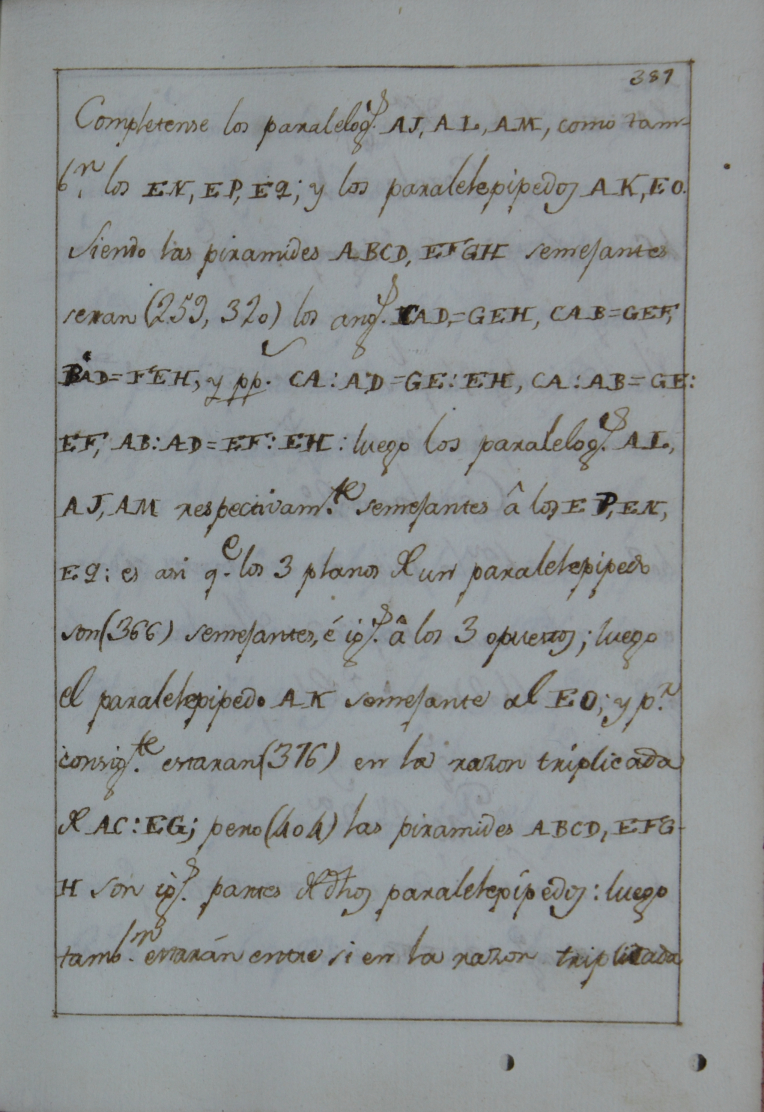 389
Completense los paralelog.s AJ, AL, AM, como tam-
b.n los EN, EP, EQ; y los paralelepipedos AK, EO.
Siendo las piramides ABCD, EFGH semejantes
seran (259, 320) los ang.s CAD,=GEH, CAB=GEF,
BAD=FEH, y pp. CA:AD=GE:EH, CA:AB=GE:
EF, AB:AD=EF:EH: luego los paralelog.s AL,
AJ, AM respectivam.te semejantes â los EP, EN,
EQ: es asi q.e los 3 planos de un paralelepipedo
son (366) semejantes, é ig.s â los 3 opuestos; luego
el paralelepipedo AK semejante al EO; y p.r
consig.te estaran (376) en la razon triplicada
de AC:EG; pero (404) las piramides ABCD, EFG-
H son ig.s partes de dhos paralelepípedos: luego
tamb.n estarán entre si en la razon triplicada